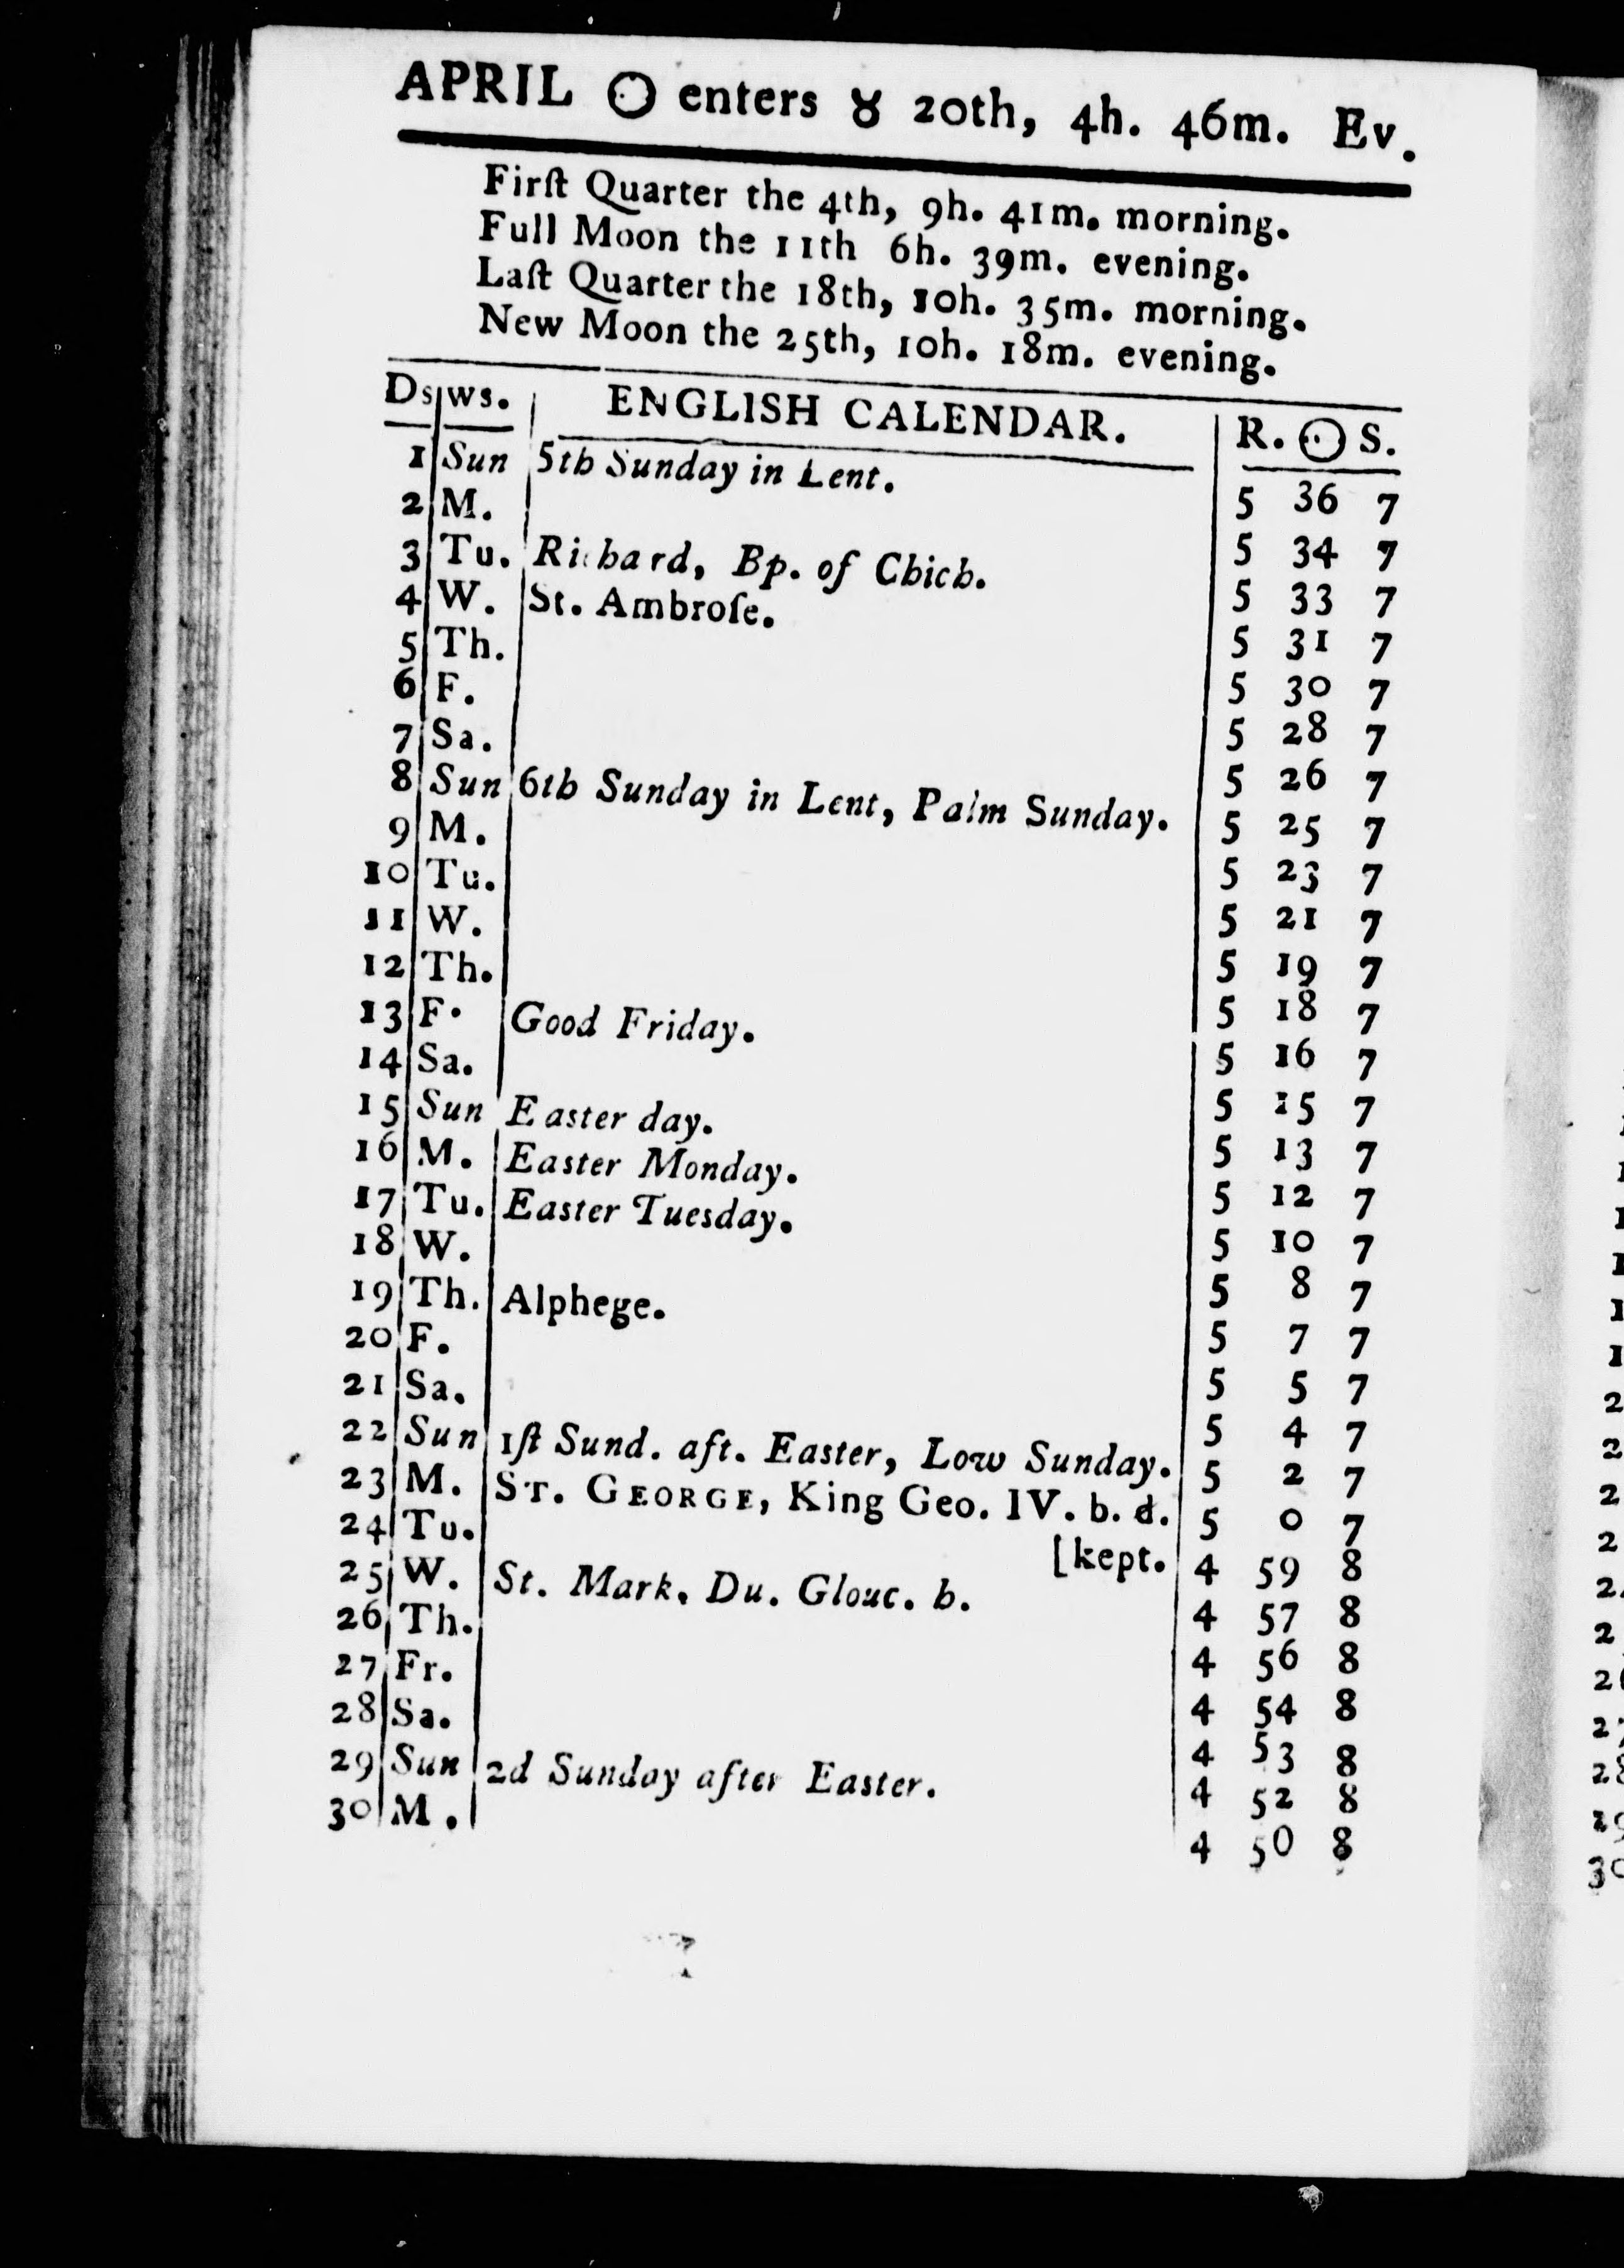 APRIL ☉ enters ♉ 20th, 4h. 46m. Ev.
Firſt Quarter the 4th, 9h. 41m. morning.
Full Moon the 11th 6h. 39m. evening.
Laſt Quarter the 18th, 10h. 35m. morning.
New Moon the 25th, 10h. 18m. evening.
Ds ws. ENGLISH CALENDAR. R. ☉ S.
1 Sun 5th Sunday in Lent. 5 36 7
2 M. 5 34 7
3 Tu. Richard, Bp. of Chich. 5 33 7
4 W. St. Ambroſe. 5 31 7
5 Th. 5 30 7
6 F. 5 28 7
7 Sa. 5 26 7
8 Sun 6th Sunday in Lent, Palm Sunday. 5 25 7
9 M. 5 23 7
10 Tu. 5 21 7
11 W. 5 19 7
12 Th. 5 18 7
13 F. Good Friday. 5 16 7
14 Sa. 5 15 7
15 Sun Easter day. 5 13 7
16 M. Easter Monday. 5 12 7
17 Tu. Easter Tuesday. 5 10 7
18 W. 5 8 7
19 Th. Alphege. 5 7 7
20 F. 5 5 7
21 Sa. 5 4 7
22 Sun 1ſt Sund. aft. Easter, Low Sunday. 5 2 7
23 M. ST. GEORGE, King Geo. IV. b. d. 5 0 7
24 Tu. [kept. 4 59 8
25 W. St. Mark, Du. Glouc. b. 4 57 8
26 Th. 4 56 8
27 Fr. 4 54 8
28 Sa. 4 53 8
29 Sun 2d Sunday after Easter. 4 52 8
30 M. 4 50 8